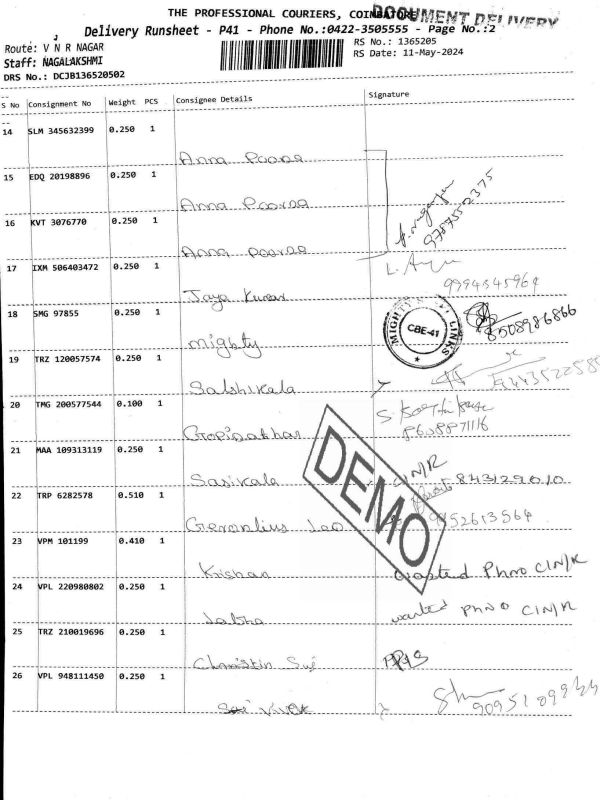 THE PROFESSIONAL COURIERS, COIMBATORE
DOCUMENT DELIVERY
Delivery Runsheet - P41 - Phone No.:0422-3505555 - Page No.:2
Route: V N R NAGAR
Staff: NAGALAKSHMI
DRS No.: DCJB136520502
RS No.: 1365205
RS Date: 11-May-2024
S No Consignment No Weight PCS Consignee Details Signature
14 SLM 345632399 0.250 1
Anna Poorna
15 EDQ 20198896 0.250 1
Anna Poorna
16 KVT 3076770 0.250 1
Anna poorna
17 IXM 506403472 0.250 1
Jaya Kumar
18 SMG 97855 0.250 1
mighty
MIGHTY LINKS
CBE-41
8508986866
19 TRZ 120057574 0.250 1
Salshikala
20 TMG 200577544 0.100 1
8608871116
21 MAA 109313119 0.250 1
Sasikala
C/N/R
22 TRP 6282578 0.510 1
DEMO
23 VPM 101199 0.410 1
Krishan
wanted Phno C/N/R
24 VPL 220980802 0.250 1
wanted PhNO C/N/R
25 TRZ 210019696 0.250 1
Christin
26 VPL 948111450 0.250 1